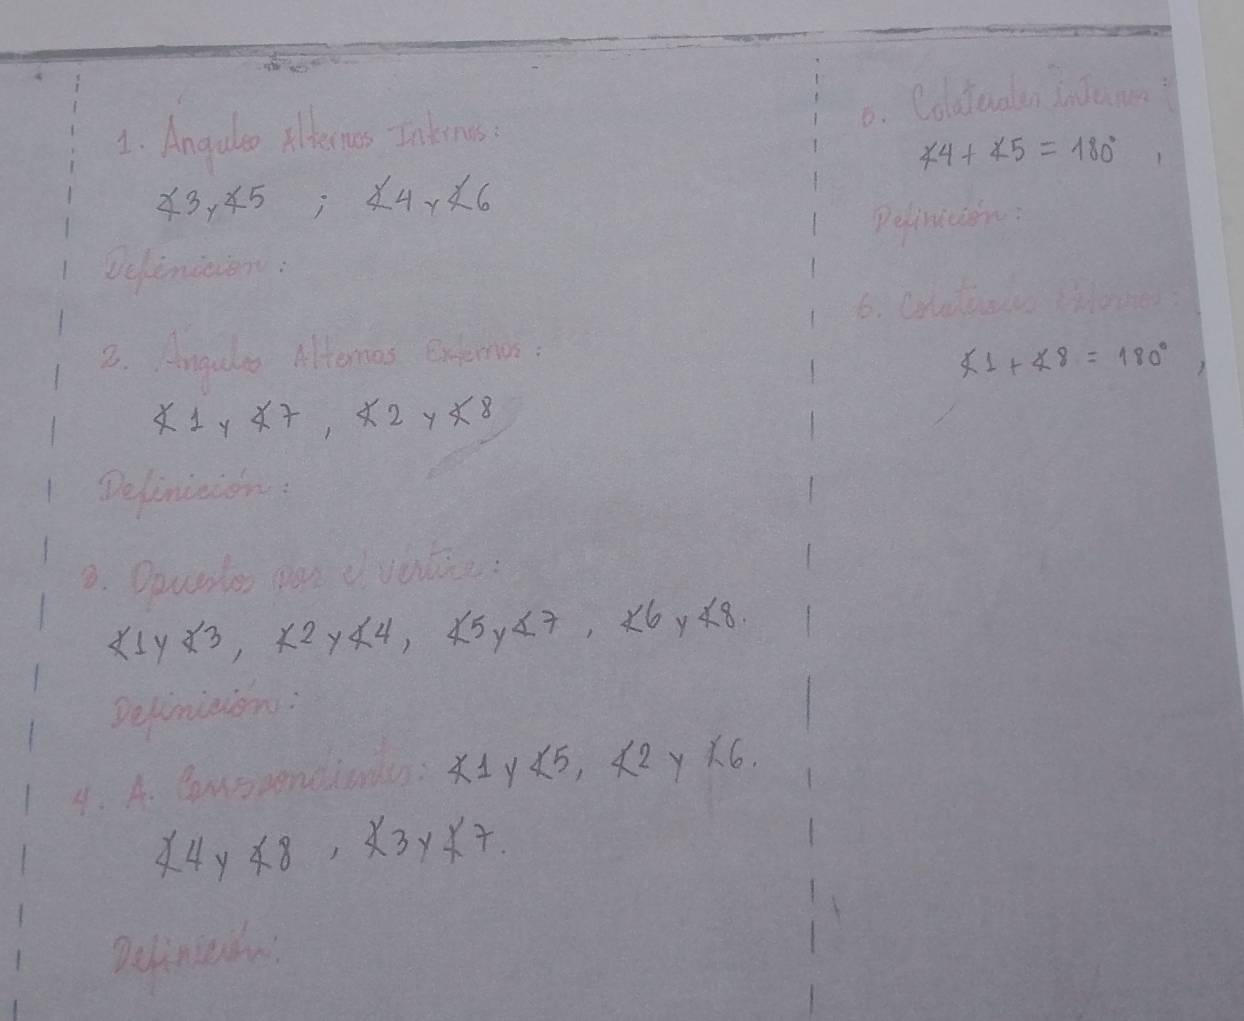 1. Angulos Alternos Internos:
∡3 y ∡5 ; ∡4 y ∡6
Definición:
2. Angulos Alternos Externos:
∡1 y ∡7, ∡2 y ∡8
Definición:
3. Opuestos por el vertice:
∡1 y ∡3, ∡2 y ∡4, ∡5 y ∡7, ∡6 y ∡8.
Definición:
4. A. Correspondientes: ∡1 y ∡5, ∡2 y ∡6.
∡4 y ∡8, ∡3 y ∡7.
Definición:
5. Colaterales internos:
∡4 + ∡5 = 180°,
Definición:
6. Colaterales Externos:
∡1 + ∡8 = 180°,